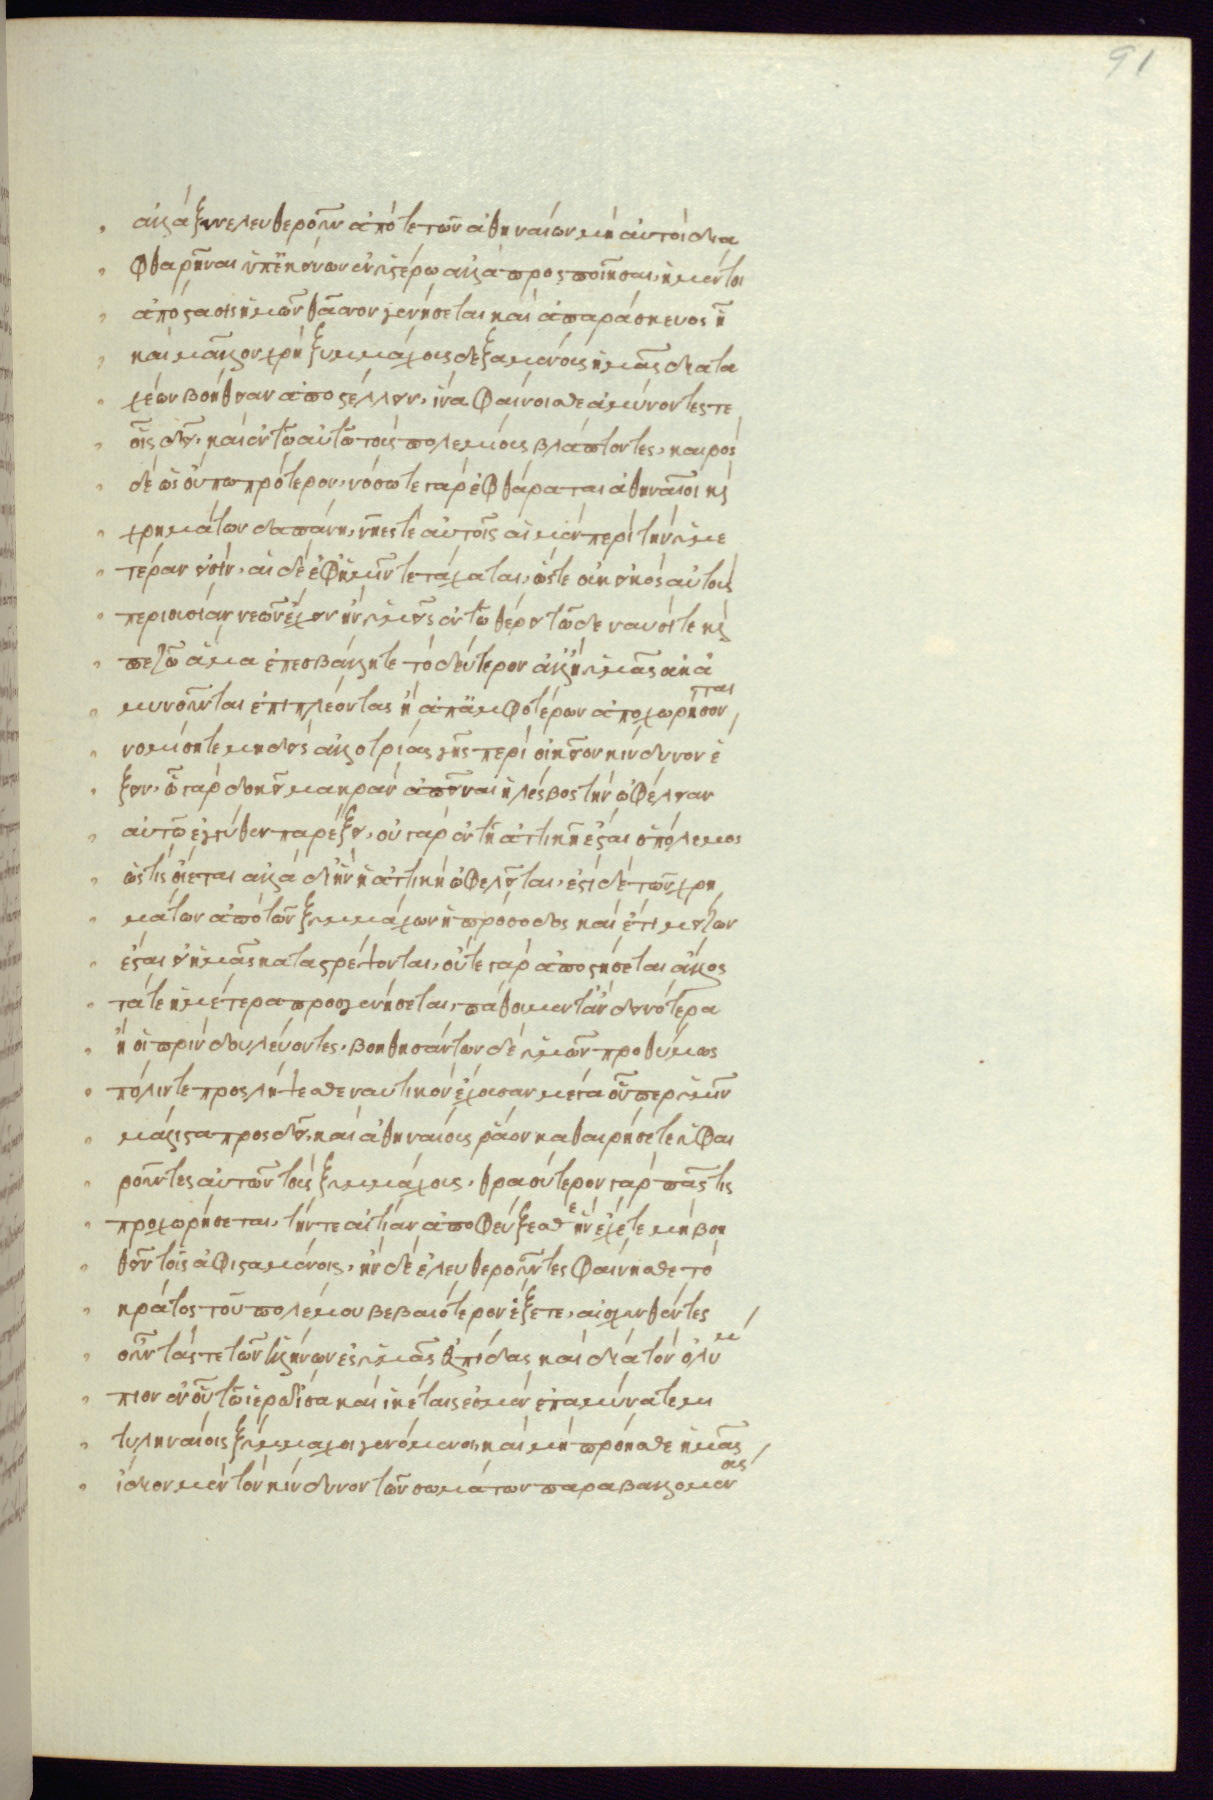 ἀλλὰ ξυνελευθεροῦν ἀπό τε τῶν ἀθηναίων μὴ αὐτοὶ δια
φθαρῆναι ὑπ' ἐκείνων ἐν ὑστέρω ἀλλὰ προςποιῆσαι, ἡ μέντοι
ἀπόστασις ἡμῶν θᾶσσον γενήσεται καὶ ἀπαράσκευος ἧ
καὶ μᾶλλον χρὴ ξυμμάχους δεξαμένους ἡμᾶς δια τα
χέων βοήθειαν ἀποστέλλειν, ἵνα φαίνοισθε ἀμύνοντες τε
οἷς δεῖ, καὶ ἐν τῶ αὐτῶ τοὺς πολεμίους βλάπτοντες, καιρὸς
δὲ ὡς οὔπω πρότερον, νόσω τε γὰρ ἐφθάραται ἀθηναῖοι καὶ
χρημάτων δαπάνη, νῆες τὲ αὐτοῖς αἱ μὲν περὶ τὴν ὑμε
τέραν εἰσὶν, αἱ δὲ ἐφ' ἡμῖν τετάχαται, ὥστε οὐκ εἰκὸς αὐτοὺς
περιουσίαν νεῶν ἔχειν ἢν ὑμεῖς ἐν τῶ θέρει τῶδε ναυσί τε καὶ
πεζῶ ἅμα ἐπεσβάλλητε τὸ δεύτερον ἀλλ' ἢ ὑμᾶς οὐκ ἀ
μυνοῦνται ἐπιπλέοντας ἢ ἀπ' ἀμφοτέρων ἀποχωρήσονται
νομίση τε μηδεὶς ἀλλοτρίας γῆς περὶ οἰκεῖον κίνδυνον ἕ
ξειν, ὧ γὰρ δοκεῖ μακρὰν ἀπεῖναι ἡ λέσβος τὴν ὠφέλειαν
αὐτῶ ἐγγύθεν παρέξει, οὐ γὰρ ἐν τῆ ἀττικῆ ἔσται ὁ πόλεμος
ὥς τις οἴεται ἀλλὰ δι' ἣν ἡ ἀττικὴ ὠφελεῖται, ἔστι δὲ τῶν χρη
μάτων ἀπὸ τῶν ξυμμάχων ἡ πρόσοδος καὶ ἔτι μείζων
ἔσται εἰ ἡμᾶς καταστρέψονται, οὔτε γὰρ ἀποστήσεται ἄλλος
τά τε ἡμέτερα προσγενήσεται, πάθοιμεν τ' ἂν δεινότερα
ἢ οἱ πρὶν δουλεύοντες, βοηθησάντων δὲ ὑμῶν προθύμως
πόλιν τε προςλήψεσθε ναυτικὸν ἔχουσαν μέγα οὗπερ ὑμῖν
μάλιστα προςδεῖ, καὶ ἀθηναίους ῥᾶον καθαιρήσετε ὑφαι
ροῦντες αὐτῶν τοὺς ξυμμάχους, θρασύτερον γὰρ πᾶς τις
προχωρήσεται, τήν τε αἰτίαν ἀποφεύξεσθε ἣν εἴχετε μὴ βοη
θεῖν τοῖς ἀφισταμένοις, ἢν δὲ ἐλευθεροῦντες φαίνησθε τὸ
κράτος τοῦ πολέμου βεβαιότερον ἕξετε, αἰσχυνθέντες
οὖν τάς τε τῶν ἑλλήνων ἐς ὑμᾶς ἐλπίδας καὶ δία τὸν ὀλύμ
πιον ἐν οὗ τῶ ἱερῶ ἴσα καὶ ἱκέται ἐσμὲν ἐπαμύνατε μι
τυληναίοις ξύμμαχοι γενόμενοι, καὶ μὴ πρόησθε ἡμᾶς
ἴδιον μὲν τὸν κίνδυνον τῶν σωμάτων παραβαλλομένους
91